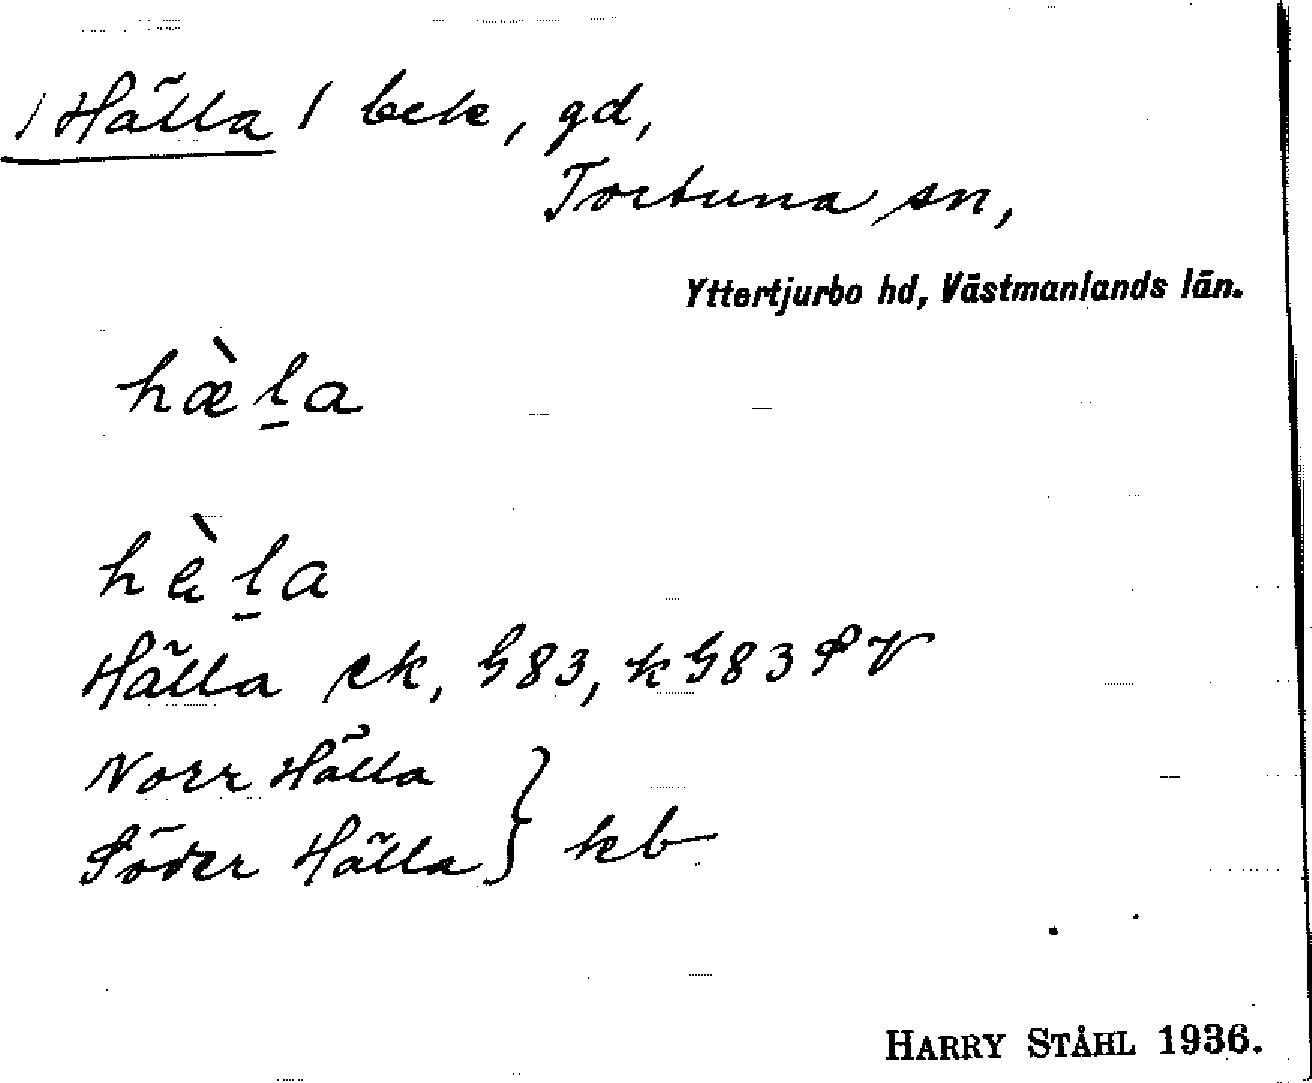 / Hälla / bck, gd,
Tortuna sn,
Yttertjurbo hd, Västmanlands län.
hæ̀ḻa
hèḻa
Hälla ek, G83, k G83 S V
Norr Hälla
Söder Hälla } kb
HARRY STÅHL 1936.